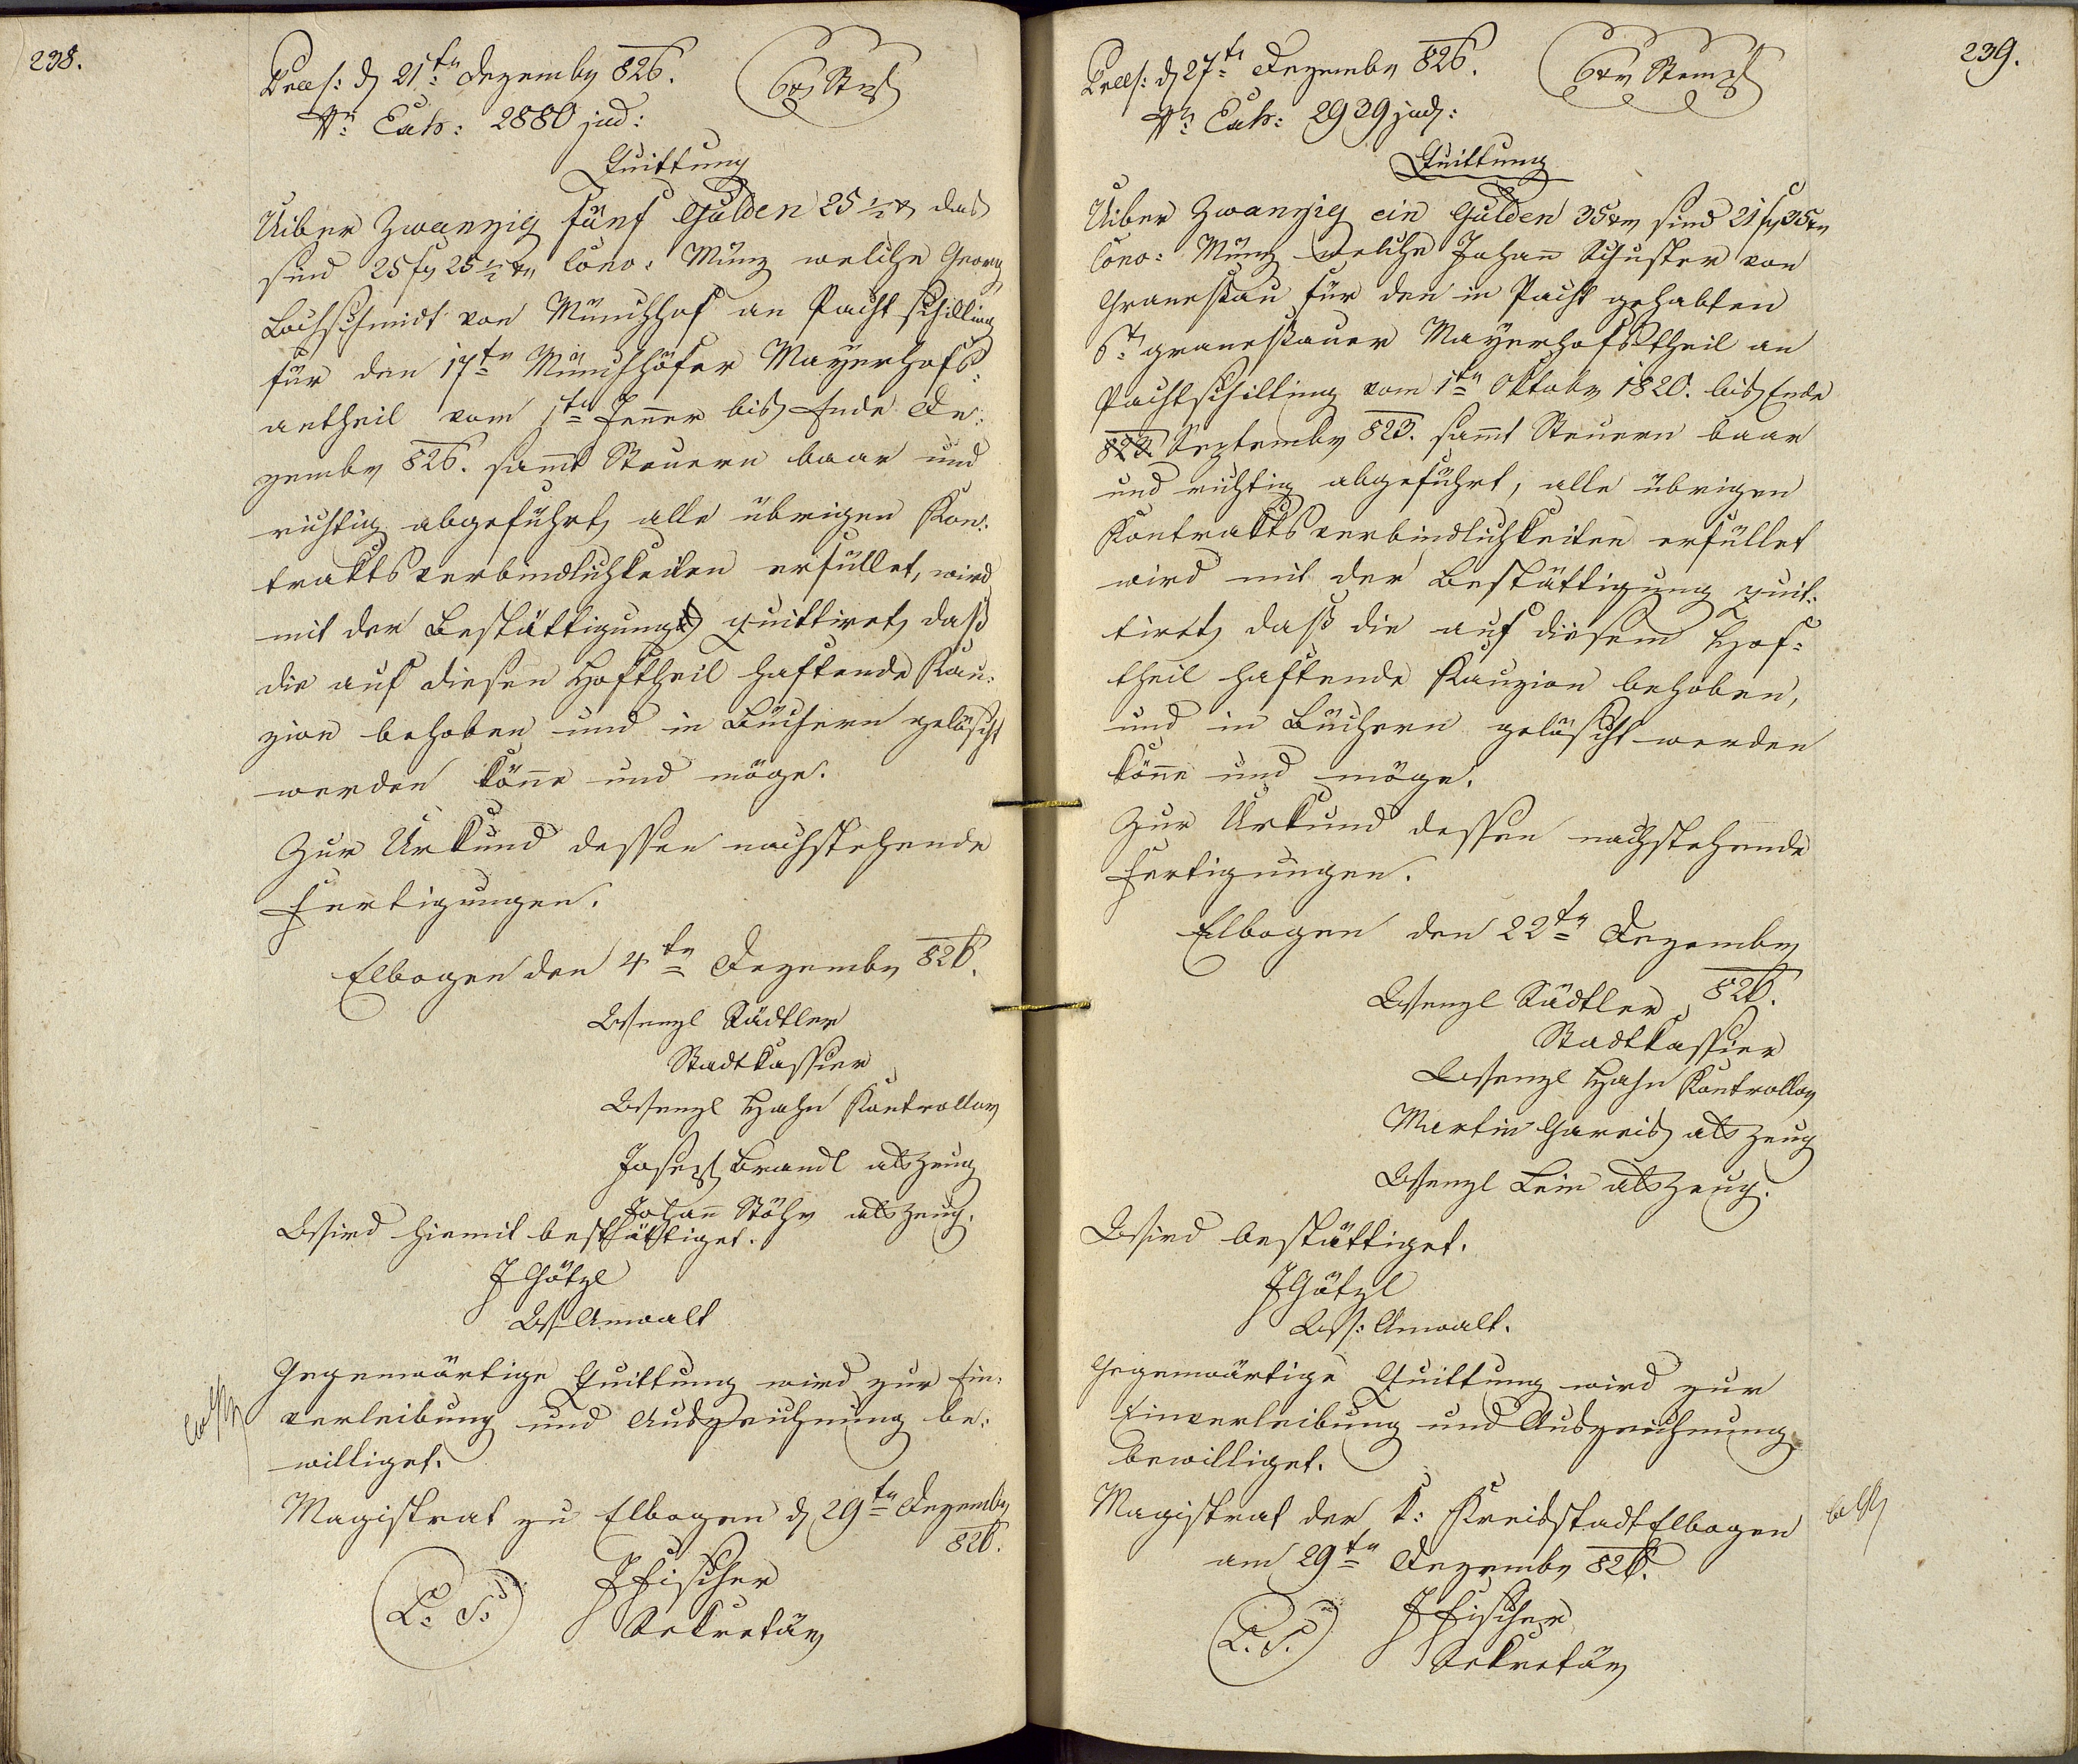 238.
Præs: d 21ten Dezember 826.
6 xr Stpl
Nr Exh: 2880 jud:
Quittung
Uiber Zwanzig fünf Gulden 25 1/2 xr das
sind 25 fl 25 1/2 xr Conv: Münz welche Georg
Lochschmidt von Münchhof an Pachtschilling
für den 17ten Münchhöfer Mayerhofs-
antheil vom 1ten Jenner bis Ende De-
zember 826. sammt Steuern baar und
richtig abgeführt, alle übrigen Kon-
traktsverbindlichkeiten erfüllet, wird
mit der Bestättigung quittiret, daß
die auf diesen Hoftheil haftende Kau-
zion behoben und in Büchern gelöscht
werden könne und möge.
Zur Urkund dessen nachstehende
Fertigungen.
Elbogen den 4ten Dezember 826.
Wenzl Städtler
Stadtkassier
Wenzl Hahn Kontrollor
Josef Brandl als Zeug
Johann Stöhr als Zeug.
Wird hiemit bestättiget.
J Götzl
Ws Anwalt
Gegenwärtige Quittung wird zur Ein-
verleibung und Aufzeichnung be-
williget.
Magistrat zu Elbogen d 29ten Dezember
826.
L. S.
J Fischer
Sekretär
239.
Præs: d 27ten Dezember 826.
6 xr Stempl
Nr Exh: 2939 jud:
Quittung
Uiber Zwanzig ein Gulden 35 xr sind 21 fl 35 xr
Conv: Münz welche Johann Schuster von
Granesau für den in Pacht gehabten
6t granesauer Mayerhofstheil an
Pachtschilling vom 1ten Oktober 1820. bis Ende
823 September 823. sammt Steuern baar
und richtig abgeführt, alle übrigen
Kontraktsverbindlichkeiten erfüllet
wird mit der Bestättigung quit-
tirt, daß die auf diesem Hof-
theil haftende Kauzion behoben,
und in Büchern gelöscht werden
könne und möge.
Zur Urkund dessen nachstehende
Fertigungen.
Elbogen den 22ten Dezember
826.
Wenzl Städtler
Stadtkassier
Wenzl Hahn Kontrollor
Martin Gareis als Zeug
Wenzl Lein als Zeug.
Wird bestättiget.
J Götzl
Ws: Anwalt.
Gegenwärtige Quittung wird zur
Einverleibung und Aufzeichnung
bewilliget.
Magistrat der k: Kreisstadt Elbogen
am 29ten Dezember 826.
L. S.
J Fischer
Sekretär